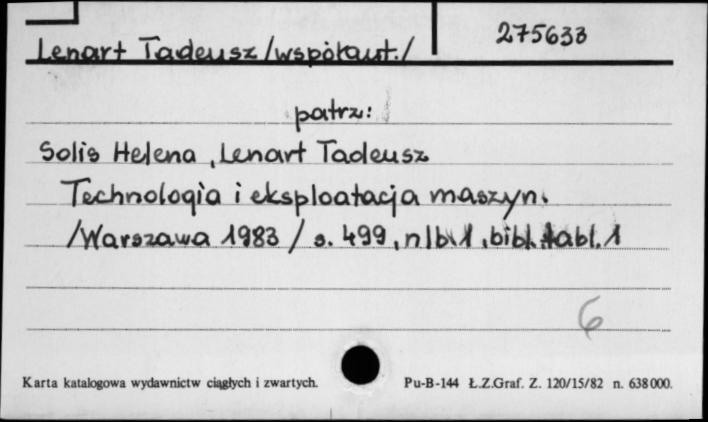 275633
Lenart Tadeusz /współaut./
patrz:
Solis Helena, Lenart Tadeusz
Technologia i eksploatacja maszyn.
/Warszawa 1983 / s. 499, nlb. 1, bibl. tabl. 1
6
Karta katalogowa wydawnictw ciągłych i zwartych. Pu-B-144 Ł.Z.Graf. Z. 120/15/82 n. 638000.